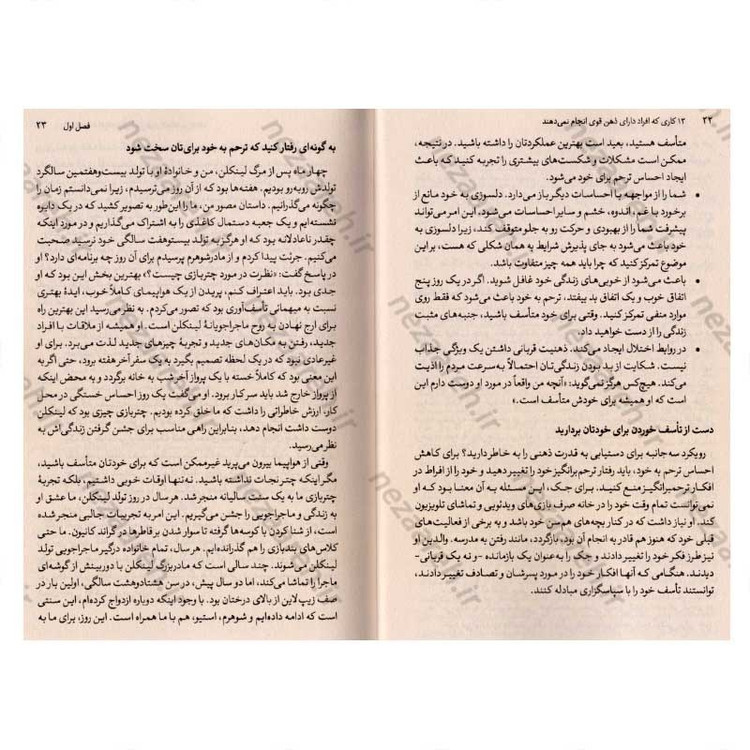 ۲۲ ۱۳ کاری که افراد دارای ذهن قوی انجام نمی‌دهند
متأسف هستید، بعید است بهترین عملکردتان را داشته باشید. در نتیجه،
ممکن است مشکلات و شکست‌های بیشتری را تجربه کنید که باعث
ایجاد احساس ترحم برای خود می‌شود.
• شما را از مواجهه با احساسات دیگر باز می‌دارد. دلسوزی به خود مانع از
برخورد با غم، اندوه، خشم و سایر احساسات می‌شود، این امر می‌تواند
پیشرفت شما را از بهبودی و حرکت رو به جلو متوقف کند، زیرا دلسوزی به
خود باعث می‌شود به جای پذیرش شرایط به همان شکلی که هست، بر این
موضوع تمرکز کنید که چرا باید همه چیز متفاوت باشد.
• باعث می‌شود از خوبی‌های زندگی خود غافل شوید. اگر در یک روز پنج
اتفاق خوب و یک اتفاق بد بیفتد، ترحم به خود باعث می‌شود که فقط روی
موارد منفی تمرکز کنید. وقتی برای خود متأسف باشید، جنبه‌های مثبت
زندگی را از دست خواهید داد.
• در روابط اختلال ایجاد می‌کند. ذهنیت قربانی داشتن یک ویژگی جذاب
نیست. شکایت از بد بودن زندگی‌تان احتمالاً به سرعت مردم را اذیت
می‌کند. هیچ‌کس هرگز نمی‌گوید: «آنچه من واقعاً در مورد او دوست دارم این
است که او همیشه برای خودش متأسف است.»
دست از تأسف خوردن برای خودتان بردارید
رویکرد سه‌جانبه برای دستیابی به قدرت ذهنی را به خاطر دارید؟ برای کاهش
احساس ترحم به خود، باید رفتار ترحم‌برانگیز خود را تغییر دهید و خود را از افراط در
افکار ترحم‌برانگیز منع کنید. برای جک، این مسئله به آن معنا بود که او
نمی‌توانست تمام وقت خود را در خانه صرف بازی‌های ویدئویی و تماشای تلویزیون
کند. او نیاز داشت که در کنار بچه‌های هم‌سن خود باشد و به برخی از فعالیت‌های
قبلی خود که هنوز هم قادر به انجام آن بود، بازگردد، مانند رفتن به مدرسه. والدین او
نیز طرز فکر خود را تغییر دادند و جک را به‌عنوان یک بازمانده - و نه یک قربانی-
دیدند. هنگامی که آنها افکار خود را در مورد پسرشان و تصادف تغییر دادند،
توانستند تأسف خود را با سپاسگزاری مبادله کنند.
فصل اول ۲۳
به گونه‌ای رفتار کنید که ترحم به خود برای‌تان سخت شود
چهار ماه پس از مرگ لینکلن، من و خانوادهٔ او با تولد بیست‌وهفتمین سالگرد
تولدش روبه‌رو بودیم. هفته‌ها بود که از آن روز می‌ترسیدم، زیرا نمی‌دانستم زمان را
چگونه می‌گذرانیم. داستان مصور من، ما را این‌طور به تصویر کشید که در یک دایره
نشسته‌ایم و یک جعبه دستمال کاغذی را به اشتراک می‌گذاریم و در مورد اینکه
چقدر ناعادلانه بود که او هرگز به تولد بیست‌وهفت سالگی خود نرسید صحبت
می‌کنیم. جرئت پیدا کردم و از مادرشوهرم پرسیدم برای آن روز چه برنامه‌ای دارد؟ او
در پاسخ گفت: «نظرت در مورد چتربازی چیست؟» بهترین بخش این بود که او
جدی بود. باید اعتراف کنم، پریدن از یک هواپیمای کاملاً خوب، ایدهٔ بهتری
نسبت به میهمانی تأسف‌آوری بود که تصور می‌کردم. به نظر می‌رسید این بهترین راه
برای ارج نهادن به روح ماجراجویانهٔ لینکلن است. او همیشه از ملاقات با افراد
جدید، رفتن به مکان‌های جدید و تجربهٔ چیزهای جدید لذت می‌برد. برای او
غیرعادی نبود که در یک لحظه تصمیم بگیرد به یک سفر آخر هفته برود، حتی اگر به
این معنی بود که کاملاً خسته با یک پرواز آخر شب به خانه برگردد و به محض اینکه
از پرواز خارج شد باید سر کار برود. او می‌گفت یک روز احساس خستگی در محل
کار، ارزش خاطراتی را داشت که ما خلق کرده بودیم. چتربازی چیزی بود که لینکلن
دوست داشت انجام دهد، بنابراین راهی مناسب برای جشن گرفتن زندگی‌اش به
نظر می‌رسید.
وقتی از هواپیما بیرون می‌پرید غیرممکن است که برای خودتان متأسف باشید،
مگر اینکه چتر نجات نداشته باشید. نه‌تنها اوقات خوبی داشتیم، بلکه تجربهٔ
چتربازی ما به یک سنت سالیانه منجر شد. هر سال در روز تولد لینکلن، ما عشق او
به زندگی و ماجراجویی را جشن می‌گیریم. این امر به تجربیات جالبی منجر شده
است، از شنا کردن با کوسه‌ها گرفته تا سوار شدن بر قاطرها در گراند کانیون. ما حتی
کلاس‌های بندبازی را هم گذرانده‌ایم. هر سال، تمام خانواده درگیر ماجراجویی تولد
لینکلن می‌شوند. چند سالی است که مادربزرگ لینکلن با دوربینش از گوشه‌ای
ماجرا را تماشا می‌کند، اما دو سال پیش، در سن هشتادوهشت سالگی، اولین بار در
صف زیپ‌لاین از بالای درختان بود. با وجود اینکه دوباره ازدواج کرده‌ام، این سنتی
است که ادامه داده‌ایم و شوهرم، استیو، هم با ما همراه است. این روز، برای ما به
nezaagh.ir